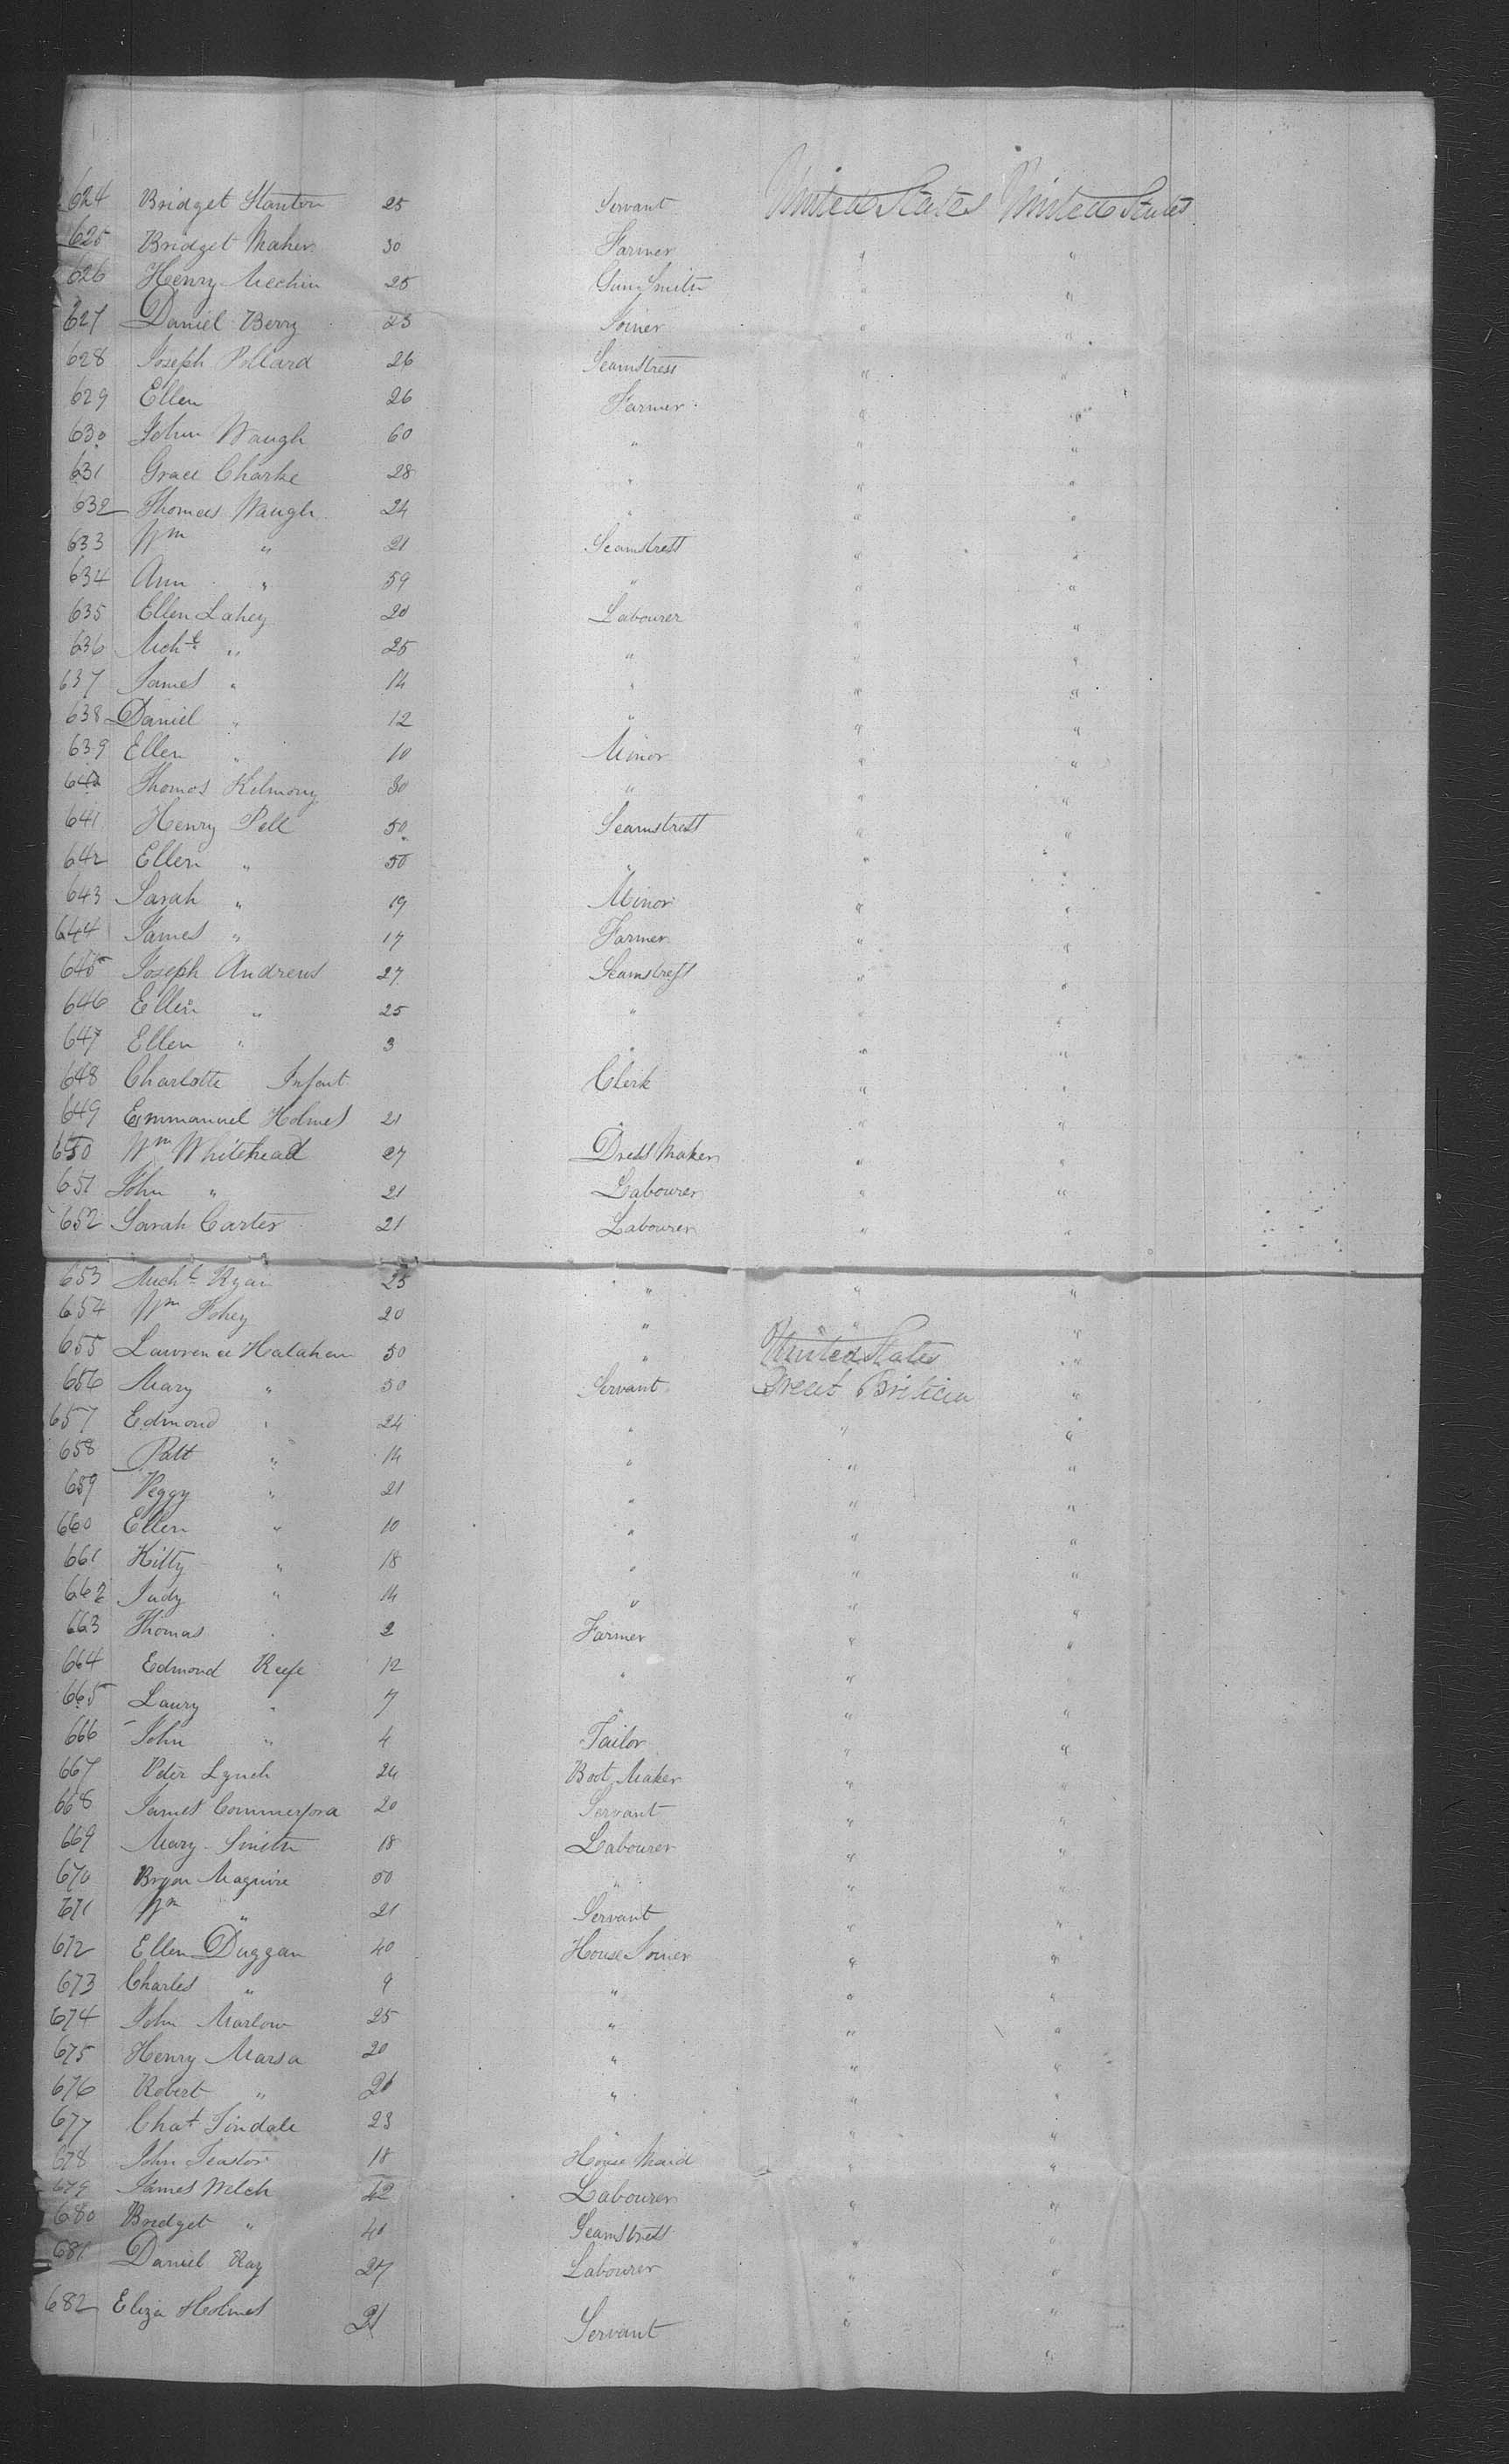 624 Bridget Stanton 25 Servant United States United States
625 Bridget Maher 30 Farmer " "
626 Henry Mechin 25 Gun Smith " "
627 Daniel Berry 23 Joiner " "
628 Joseph Pollard 26 Seamstress " "
629 Ellen 26 Farmer " "
630 John Waugh 60 " " "
631 Grace Charke 28 " " "
632 Thomas Waugh 24 " " "
633 Wm " 21 Seamstress " "
634 Ann " 59 " " "
635 Ellen Lahey 20 Labourer " "
636 Michl " 25 " " "
637 James " 14 " " "
638 Daniel " 12 " " "
639 Ellen " 10 Minor " "
640 Thomas Kilmony 30 " " "
641 Henry Pell 50 Seamstress " "
642 Ellen " 50 " " "
643 Sarah " 19 Minor " "
644 James " 17 Farmer " "
645 Joseph Andrews 27 Seamstress " "
646 Ellen " 25 " " "
647 Ellen " 3 " " "
648 Charlotte Infant Clerk " "
649 Emmanuel Holmes 21 " " "
650 Wm Whitehead 27 Dress Maker " "
651 John " 21 Labourer " "
652 Sarah Carter 21 Labourer " "
653 Michl Ryan 25 " " "
654 Wm Fohey 20 " " "
655 Lawrence Halahan 50 " United States "
656 Mary " 50 Servant Great Britian "
657 Edmond " 24 " " "
658 Patt " 14 " " "
659 Peggy " 21 " " "
660 Ellen " 10 " " "
661 Kitty " 18 " " "
662 Judy " 14 " " "
663 Thomas " 2 Farmer " "
664 Edmond Keefe 12 " " "
665 Laury " 7 " " "
666 John " 4 Tailor " "
667 Peter Lynch 24 Boot Maker " "
668 James Commerford 20 Servant " "
669 Mary Smith 18 Labourer " "
670 Bryan Maguire 50 " " "
671 Wm " 21 Servant " "
672 Ellen Duggan 40 House Joiner " "
673 Charles " 9 " " "
674 John Marlow 25 " " "
675 Henry Marsa 20 " " "
676 Robert " 21 " " "
677 Chas Tindale 23 " " "
678 John Teastor 18 House Maid " "
679 James Welch 42 Labourer " "
680 Bridget " 40 Seamstress " "
681 Daniel Ray 27 Labourer " "
682 Eliza Holmes 21 Servant " "